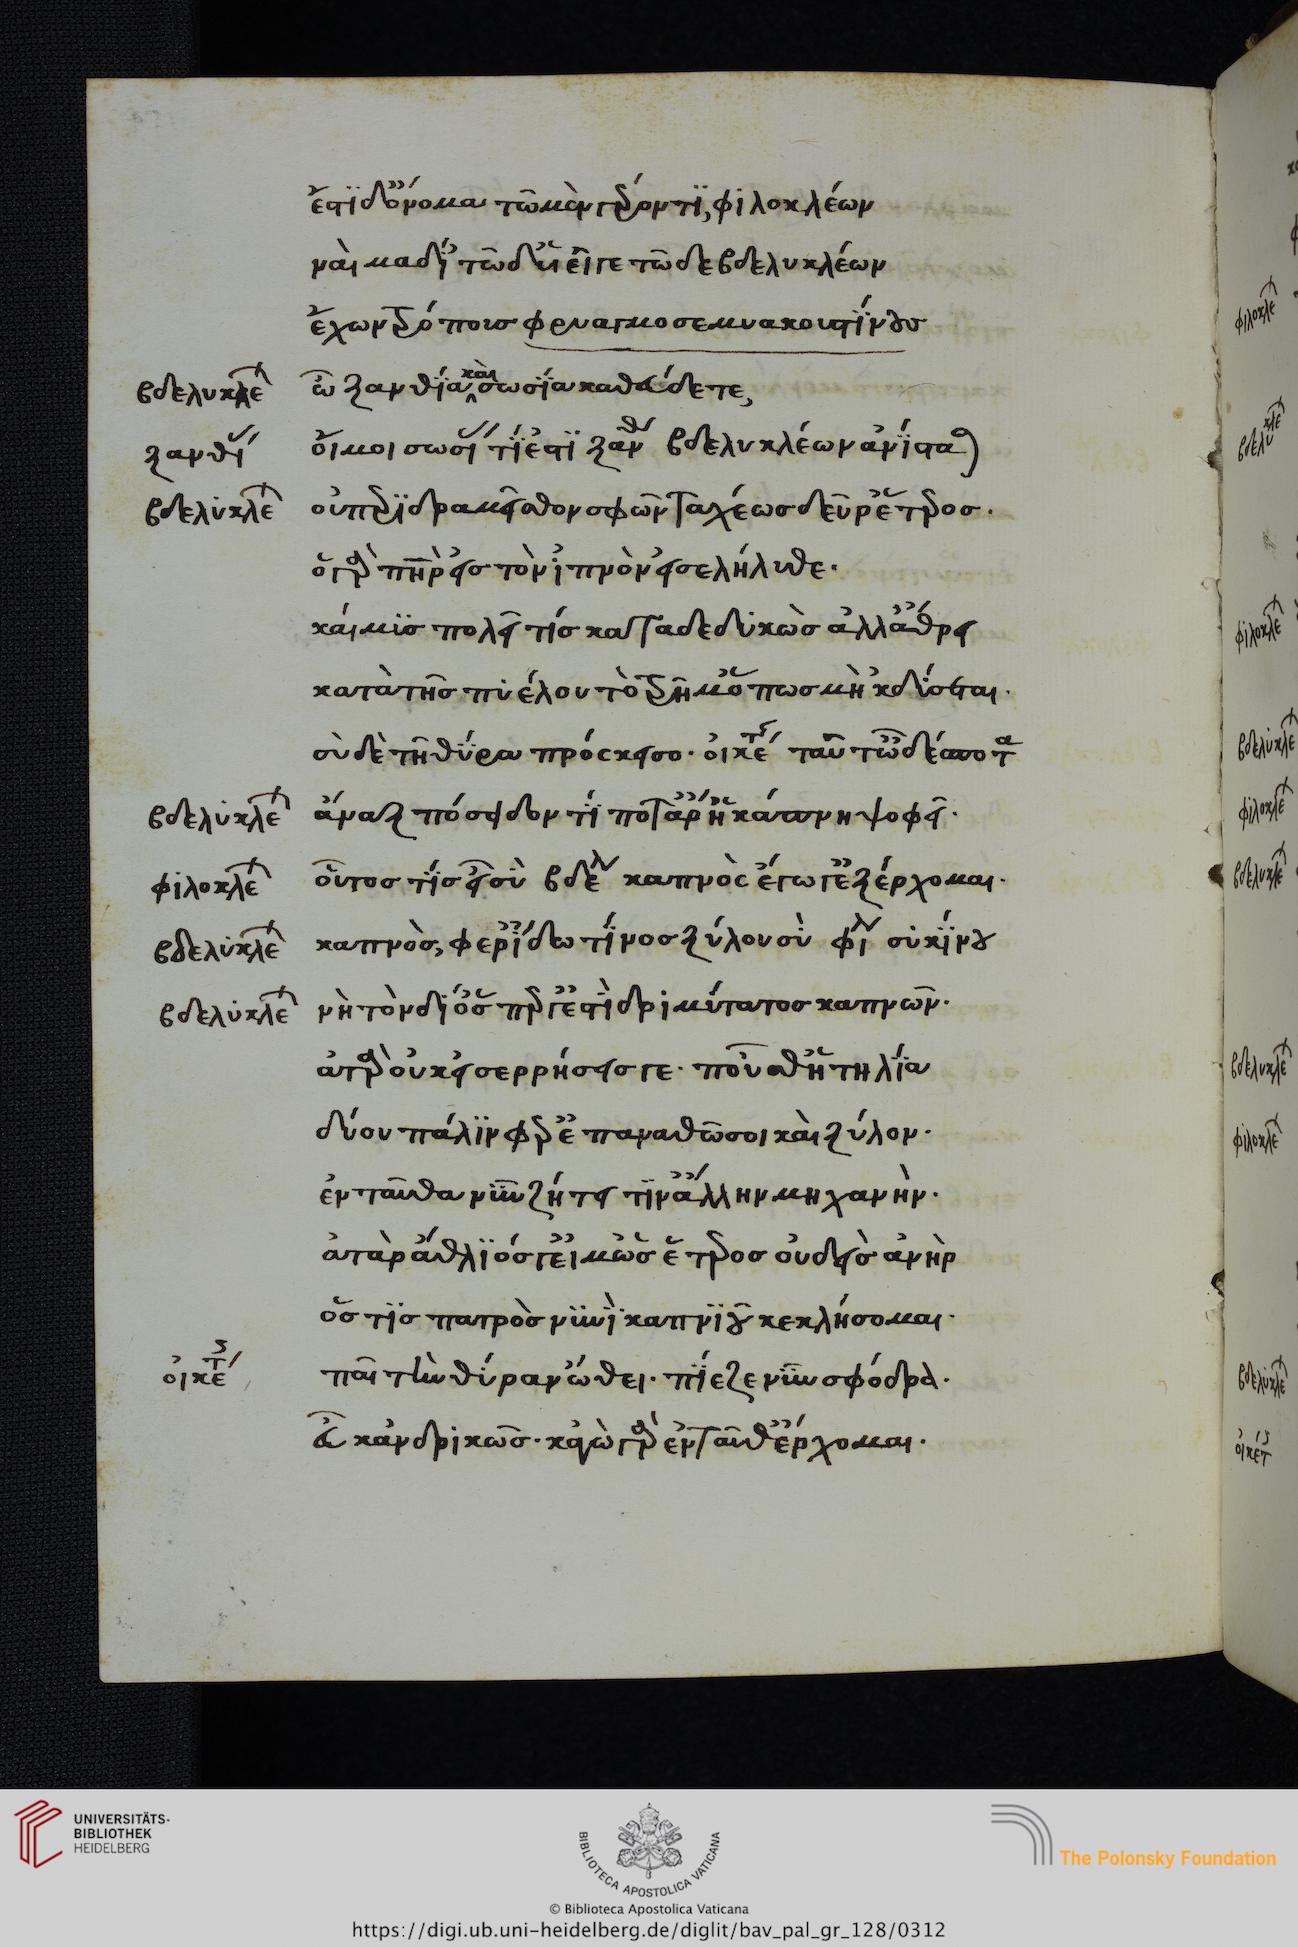 ἔστι δ' ὄνομα τῶ μὲν γέροντι, φιλοκλέων
ναὶ μὰ δί' τῶ δ' υἱεῖ γε τῶδε βδελυκλέων
ἔχων τρόπους φρυαγμοσεμνακουστίνους
βδελυκλέ ὦ ξανθία καὶ σωσία καθεύδετε,
ξανθί οἴμοι σωσί τί ἐστι ξαν βδελυκλέων ἀνίσταται
βδελυκλέ οὐ περιδραμεῖται σφῶν ταχέως δεῦρ' ἕτερος.
ὁ γὰρ πατὴρ εἰς τὸν ἰπνὸν εἰσελήλυθε.
καὶ μυσπολεῖ τίς καταδεδυκὼς ἀλλ' ἄθρει
κατὰ τῆς πυέλου τὸ τρῆμ' ὅπως μὴ 'κδύσεται.
σὺ δὲ τῆ θύρα πρόσκεισο. οἰκέτ ταῦτ' ὦ δέσποτα
βδελυκλέ ἄναξ πόσειδον τί ποτ' ἄρ' ἡ κάπνη ψοφεῖ.
φιλοκλέ οὗτος τίς εἶ σὺ βδελ καπνὸς ἔγωγ' ἐξέρχομαι.
βδελυκλέ καπνὸς, φέρ' ἴδω τίνος ξύλου σὺ φιλ συκίνου
βδελυκλέ νὴ τὸν δί' ὅσπερ γ' ἐστὶ δριμύτατος καπνῶν.
ἀτὰρ οὐκ εἰσερρήσεις γε. ποῦ 'σθ' ἡ τηλία
δύου πάλιν φέρ' ἐπαναθῶ σοι καὶ ξύλον.
ἐνταῦθα νῦν ζήτει τίν' ἄλλην μηχανὴν.
ἀτὰρ ἄθλιός γ' εἰμ' ὡς ἕτερος οὐδεὶς ἀνὴρ
ὅστις πατρὸς νυνὶ καπνίου κεκλήσομαι.
οἰκέτ παῖ τὴν θύραν ὤθει. πίεζε νῦν σφόδρα.
εὖ κἀνδρικῶς. κἀγὼ γὰρ ἐνταῦθ' ἔρχομαι.
φιλοκλέ
βδελυκλέ
φιλοκλέ
βδελυκλέ
φιλοκλέ
βδελυκλέ
βδελυκλέ
φιλοκλέ
βδελυκλέ
οἰκέτ
UNIVERSITÄTS-
BIBLIOTHEK
HEIDELBERG
BIBLIOTECA APOSTOLICA VATICANA
© Biblioteca Apostolica Vaticana
The Polonsky Foundation
https://digi.ub.uni-heidelberg.de/diglit/bav_pal_gr_128/0312